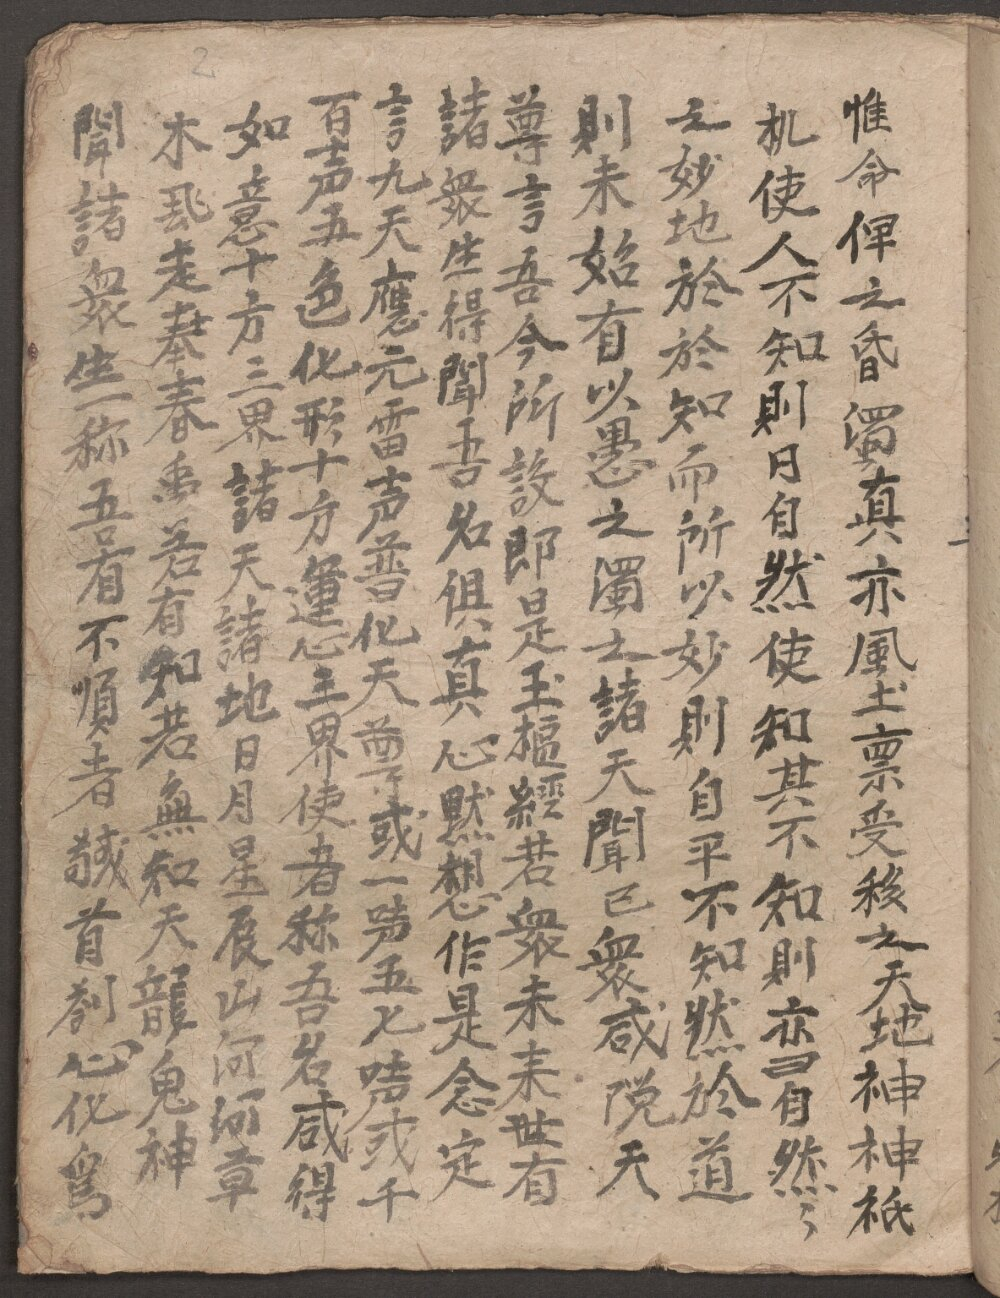 2
惟命俾之昏濁真亦風土禀受移之天地神神祇
机使人不知則日自然使知其不知則亦曰自然々
之妙地於於知而所以妙則自平不知然於道
則未始有以愚之濁之諸天聞已衆咸隗天
尊言吾今所說即是玉樞經若衆未来世有
諸衆生得聞吾名俱真心黙想作是念定
言九天應元雷声普化天尊或一声五七声或千
百声五色化形十方運心三界使者称吾名咸得
如意十方三界諸天諸地日月星辰山河河草
木飛走奉春禹若有知若無知天龍鬼神
聞諸衆生一称吾有不順者馘首刳心化為